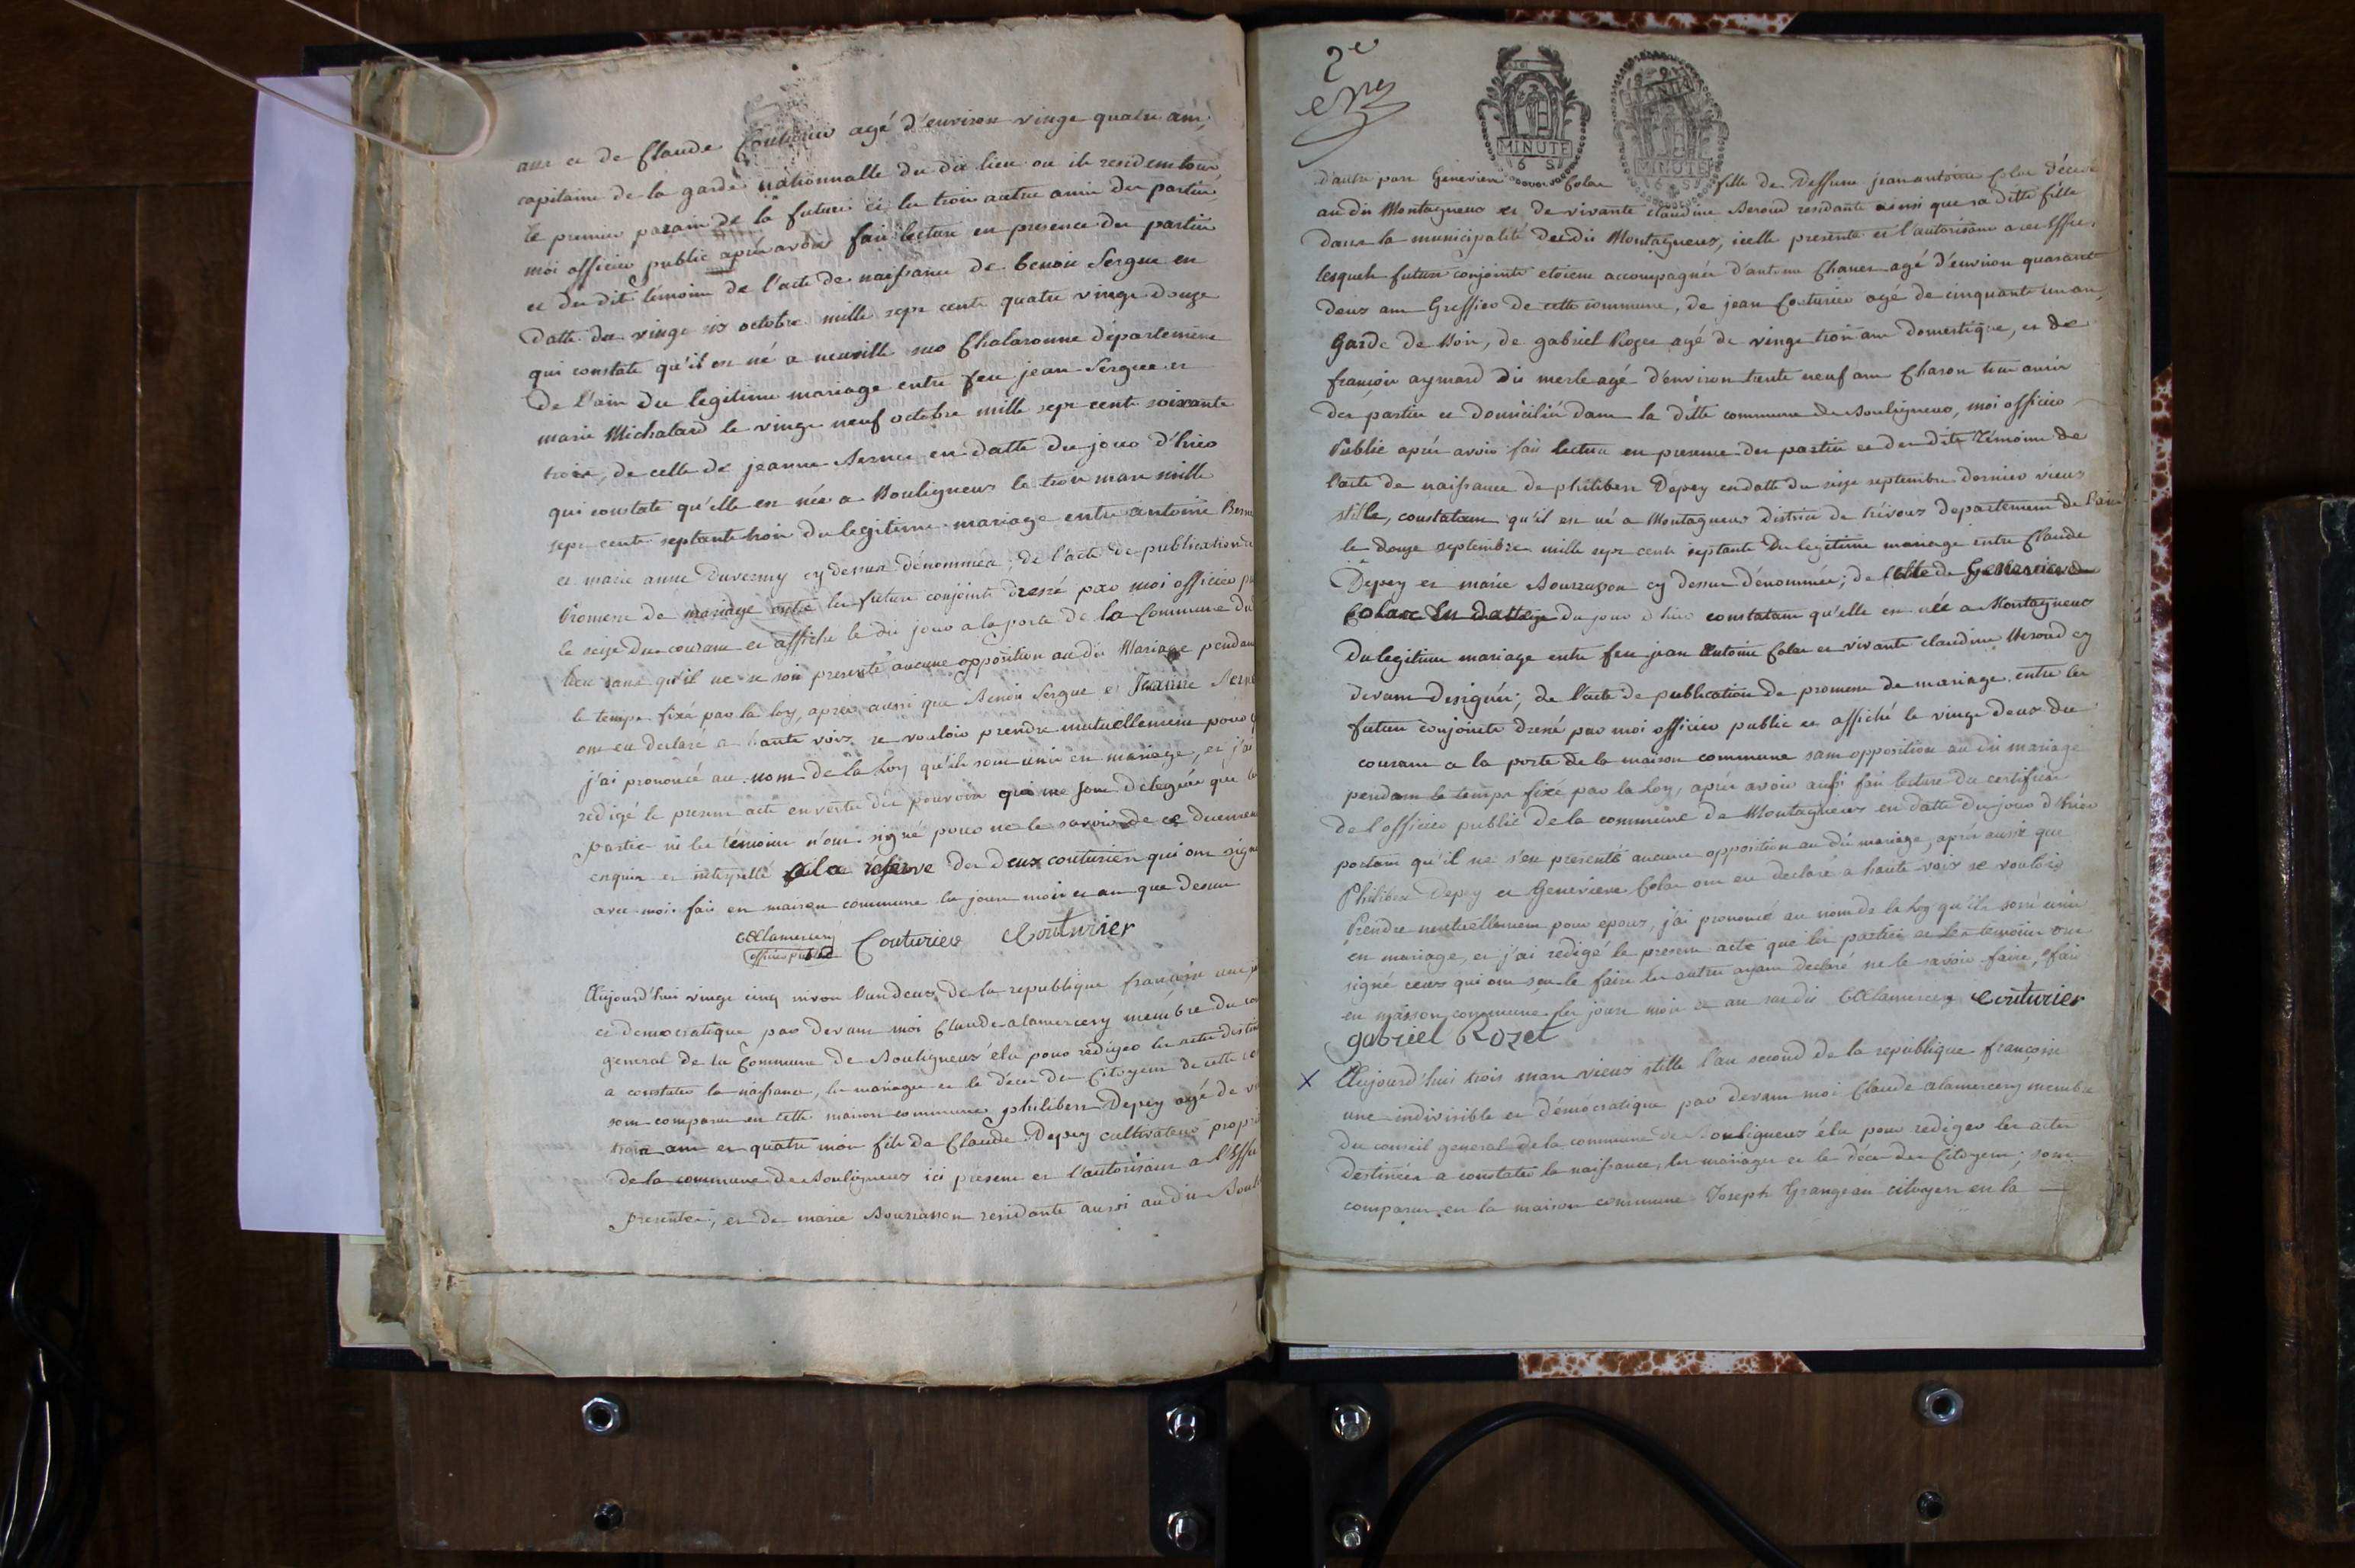 ans et de Claude Couturier agé d'environ vingt quatre ans,
capitaine de la garde nationnalle du dit lieu ou ils resident tous
le premier parain de la future et les trois autres amis des parties,
moi officier public après avoir fait lecture en presence des parties
et des dits témoins de l'acte de naissance de benoit Sergue en
datte du vingt six octobre mille sept cents quatre vingt douze
qui constate qu'il est né a neuville sur Chalaronne département
de l'ain du legitime mariage entre feu jean Sergue et
marie Michalard le vingt neuf octobre mille sept cents soixante
trois, de celle de jeanne Berne en datte du jour d'hier
qui constate qu'elle est née a Bouligneux le trois mars mille
sept cents septante trois du legitime mariage entre antoine Berne
et marie anne Duvernay cy dessus dénommés; de l'acte de publication de
Promesse de mariage entre les futurs conjoints dressé par moi officier pu
le seize du courant et affiché le dit jour a la porte de la Commune du
lieu sans qu'il ne se soit presenté aucune opposition au dit Mariage pendant
le temps fixé par la loy, après aussi que Benoit Sergue et Jeanne Berne
ont eu declaré a haute voix se vouloir prendre mutuellement pour
j'ai prononcé au nom de la Loy qu'ils sont unis en mariage, et j'ai
redigé le present acte en vertu des pouvoirs qui me sont délégués que les
parties ni les témoins n'ont signé pour ne le savoir de ce duement
enquis et interpellé a la réserve des deux couturier qui ont signé
avec moi fait en maison commune les jours mois et an que dessus
CAlamercery
officier public Couturier Couturier
Aujourd'hui vingt cinq nivose l'an deux de la republique françoise une
et democratique par devant moi Claude alamercery membre du con
general de la Commune de Bouligneux élu pour rediger les actes destinés
a constater la naissance, les mariages et le décès des Citoyens de cette
sont comparus en cette maison commune philibert Depey agé de vingt
trois ans et quatre mois fils de Claude Depey cultivateur propri
de la commune de Bouligneux ici present et l'autorisant a l'Effet
presentes; et de marie Bourrasson residante aussi au dit Boul
2e
MINUTE
6 S
MINUTE
6 S
d'autre part Genevieve Colas fille de deffunt jean antoine Colas décédé
au dit Montagneux et de vivante claudine Beroud residante ainsi que sa ditte fille
dans la municipalité du dit Montagneux, icelle presente et l'autorisant a ces Effets,
lesquels futurs conjoints etoient accompagnés d'antoine Chanet agé d'environ quarante
deux ans Greffier de cette commune, de jean Couturier agé de cinquante un an,
garde de Bois, de gabriel Rozet agé de vingt trois ans domestique, et de
françois aymard dit merle agé d'environ trente neuf ans Charon tous amis
des parties et domiciliés dans la ditte commune de Bouligneux, moi officier
Public après avoir fait lecture en presence des parties et des dits Témoins de
l'acte de naissance de philibert Depey en datte du seize septembre dernier vieux
stille, constatant qu'il est né a Montagneux district de trévoux departement de l'ain
le douze septembre mille sept cents septante du legitime mariage entre Claude
Depey et marie Bourrasson cy dessus dénommés; de celle de Genevieve
Colas En datte du jour d'hier constatant qu'elle est née a Montagneux
du legitime mariage entre feu jean Antoine Colas et vivante claudine Beroud cy
devant designés; de l'acte de publication de promesse de mariage entre les
futurs conjoints dressé par moi officier public et affiché le vingt deux du
courant a la porte de la maison commune sans opposition au dit mariage
pendant le temps fixé par la Loy, après avoir aussi fait lecture du certificat
de l'officier public de la commune de Montagneux en datte du jour d'hier
portant qu'il ne s'est presenté aucune opposition au dit mariage, après aussi que
Philibert Depey et Genevieve Colas ont eu declaré a haute voix se vouloir
Prendre mutuellement pour epoux, j'ai prononcé au nom de la loy qu'ils sont unis
en mariage, et j'ai redigé le present acte que les parties et les témoins ont
signé ceux qui ont seu le faire les autres ayant declaré ne le savoir faire, fait
en maison commune les jours mois et an susdit CAlamercery Couturier
gabriel Rozet
x Aujourd'hui trois mars vieux stille l'an second de la république françoise
une indivisible et démocratique par devant moi Claude alamercery membre
du conseil general de la commune de Bouligneux élu pour rediger les actes
destinés a constater la naissance, les mariages et le décès des Citoyens; sont
comparus en la maison commune Joseph Grangean citoyen en la